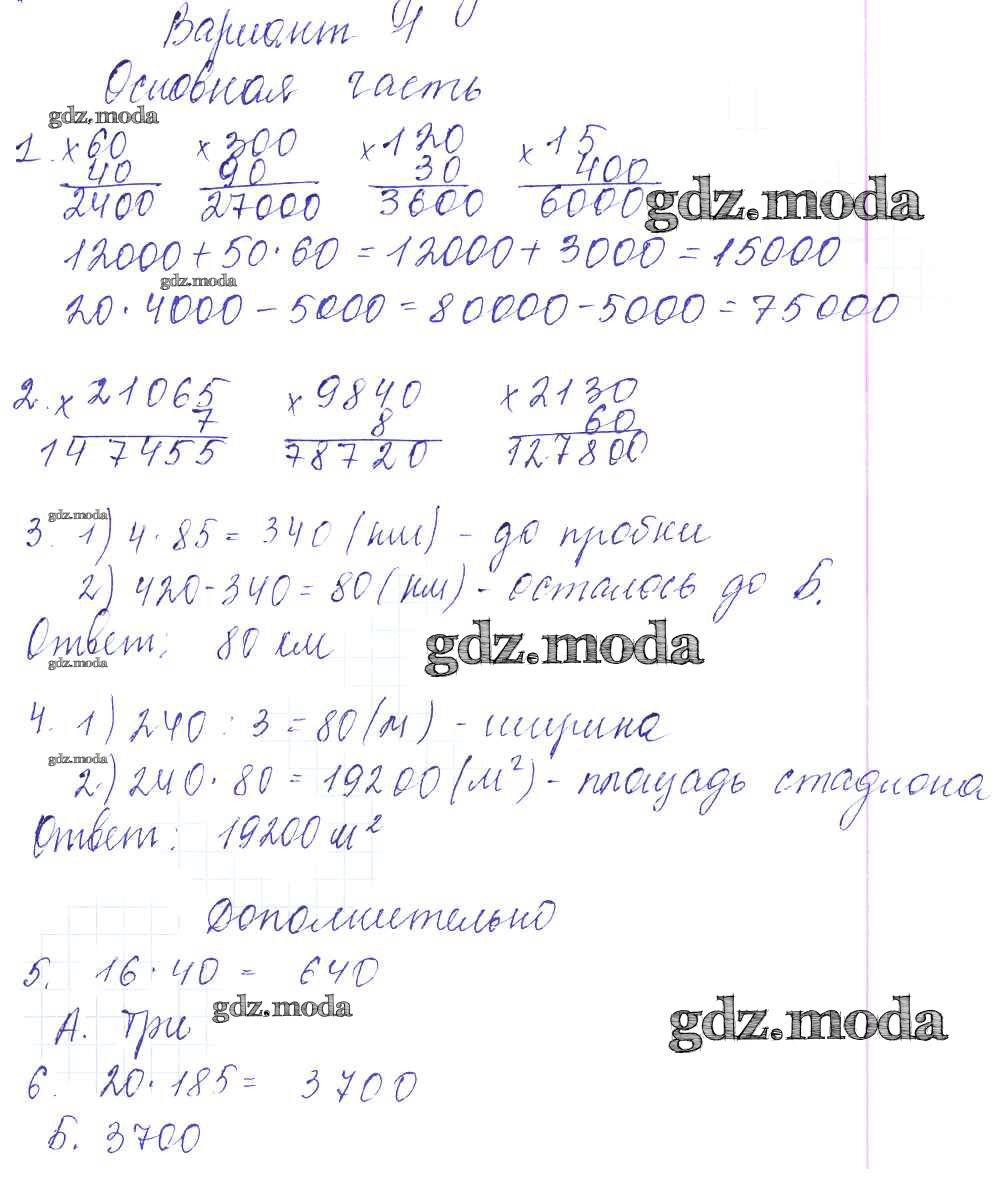 Вариант 4
Основная часть
gdz.moda
1. × 60 × 300 × 120 × 15
40 90 30 400
2400 27000 3600 6000
gdz.moda
12000 + 50 · 60 = 12000 + 3000 = 15000
gdz.moda
20 · 4000 – 5000 = 80000 – 5000 = 75000
2. × 21065 × 9840 × 2130
7 8 60
147455 78720 127800
gdz.moda
3. 1) 4 · 85 = 340 (км) – до пробки
2) 420 - 340 = 80 (км) – осталось до Б.
Ответ: 80 км
gdz.moda
gdz.moda
4. 1) 240 : 3 = 80 (м) – ширина
gdz.moda
2) 240 · 80 = 19200 (м²) – площадь стадиона
Ответ: 19200 м²
Дополнительно
5. 16 · 40 = 640
gdz.moda
А. Три
gdz.moda
6. 20 · 185 = 3700
Б. 3700